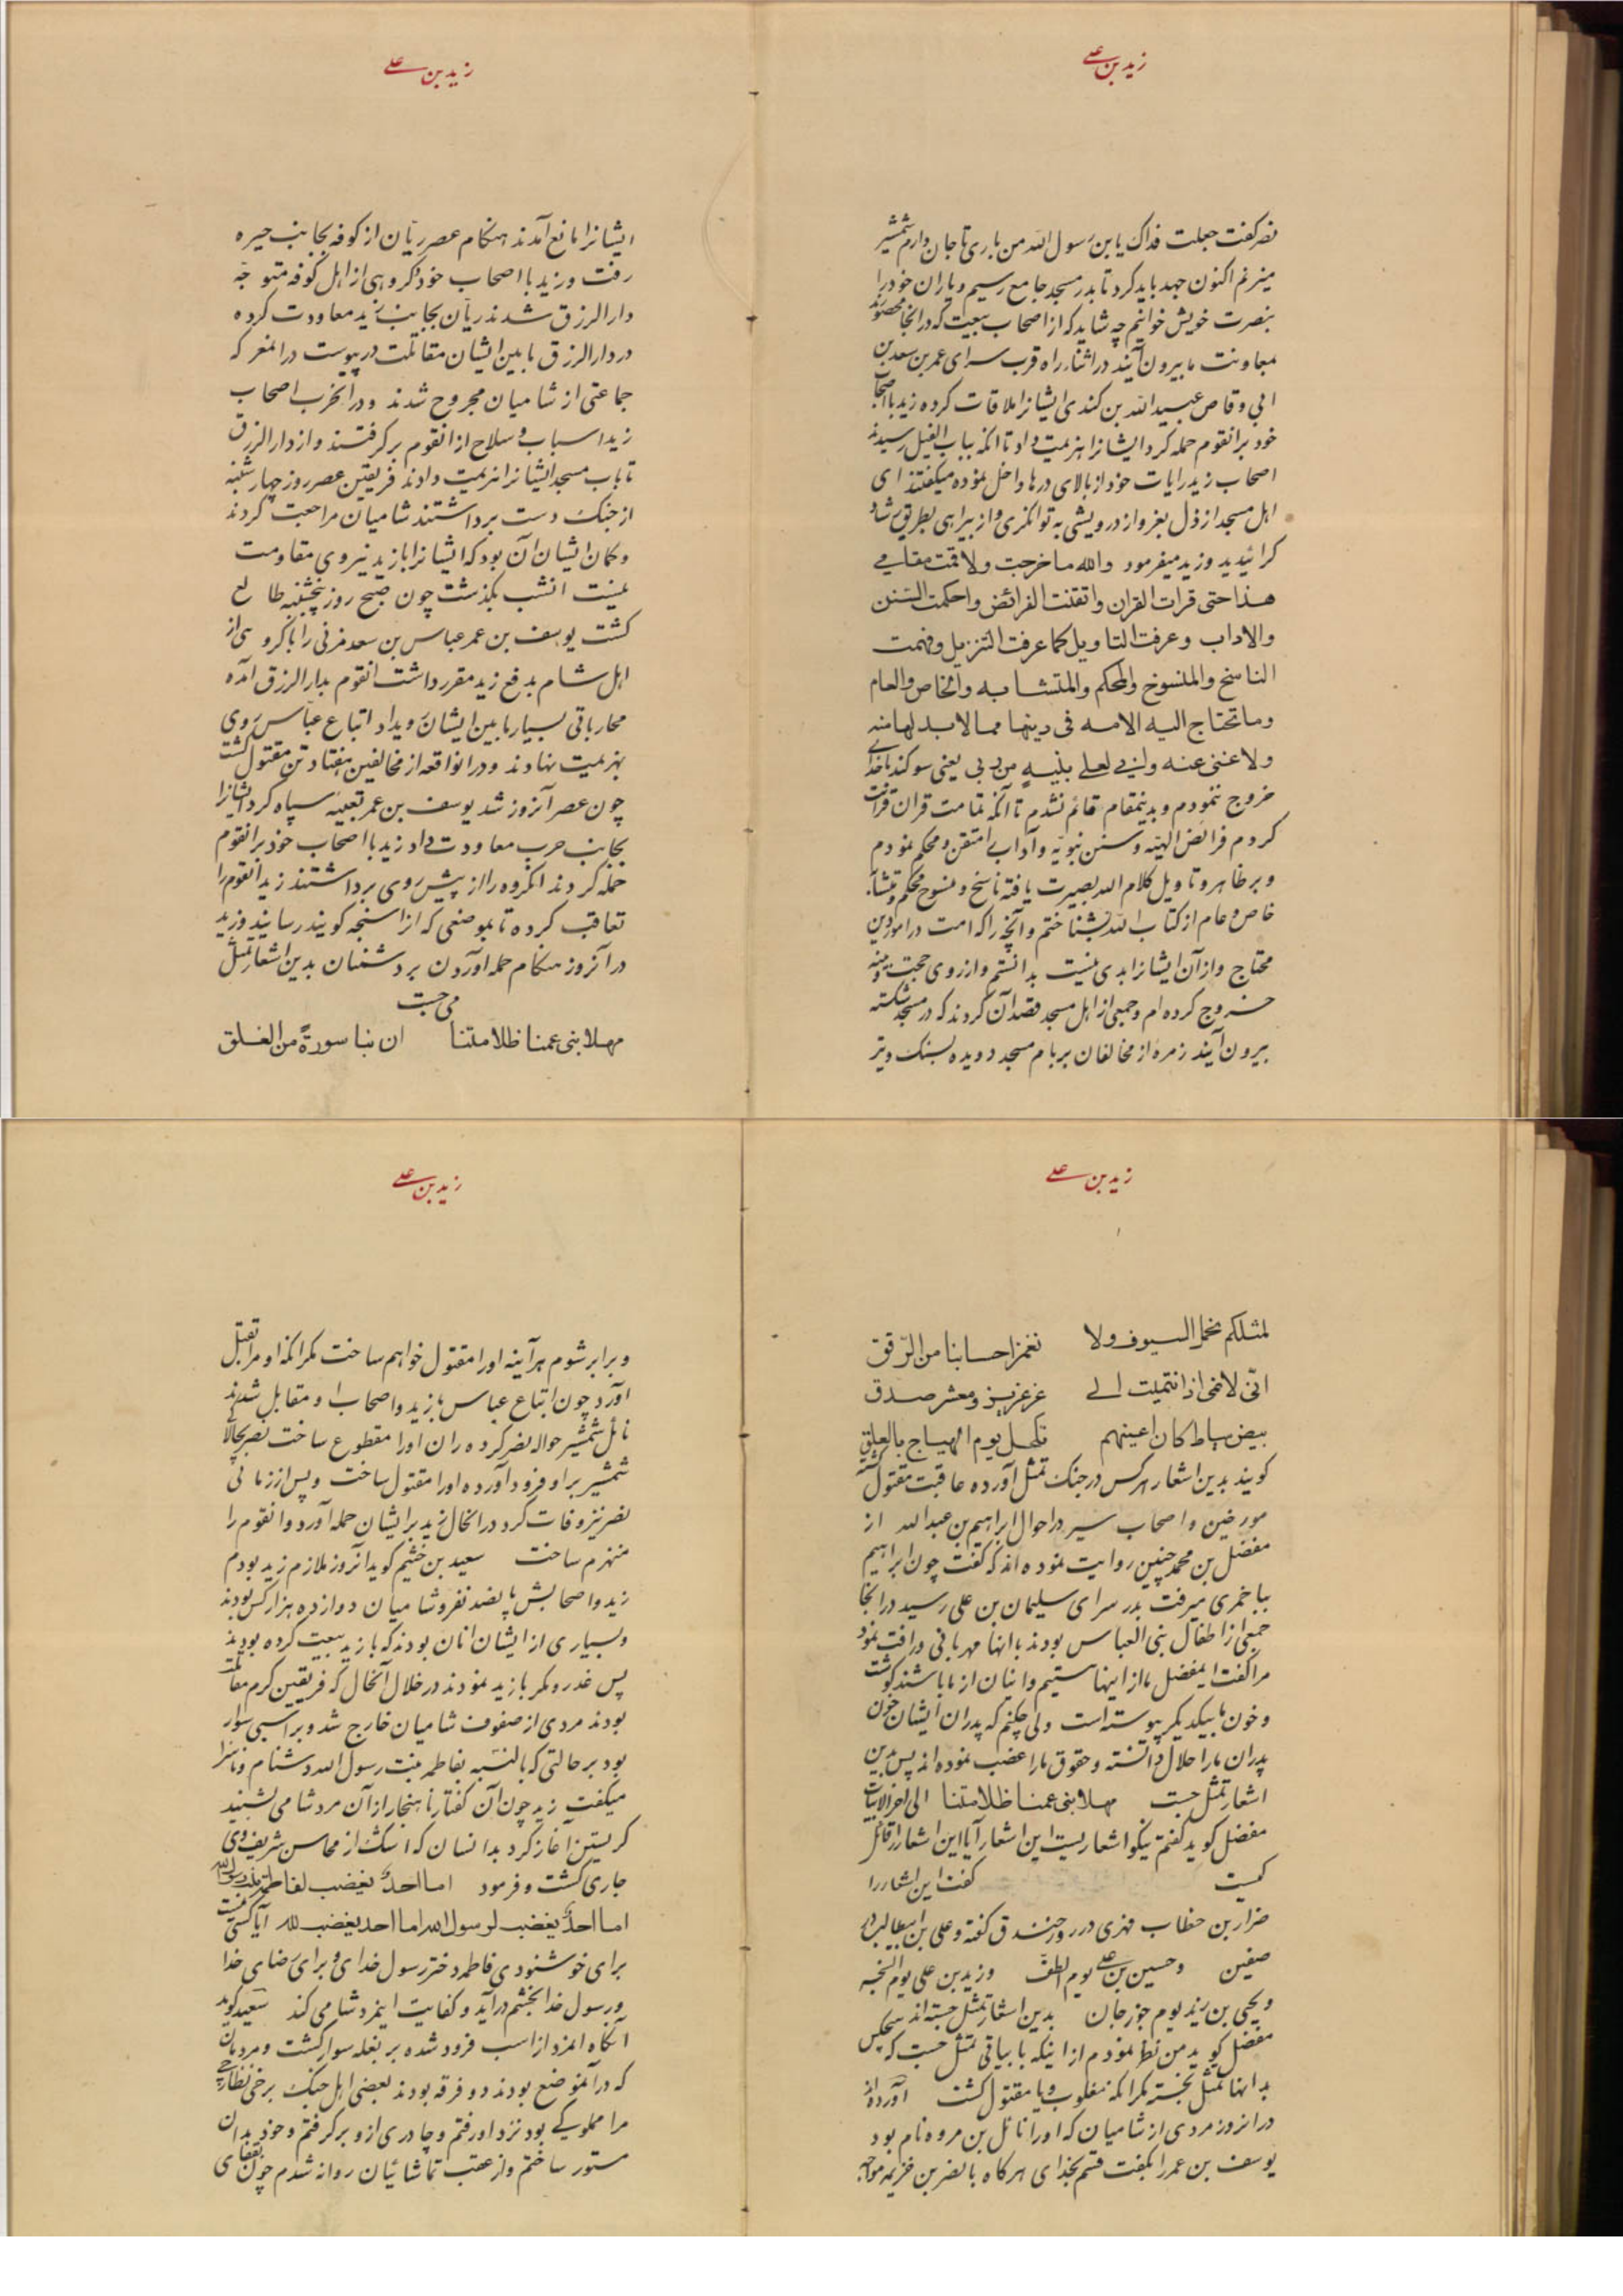 زید بن علی
نصر گفت جعلت فداک یابن رسول الله من باری تا جان دارم شمشیر
میزنم اکنون جهد باید کرد تا بدر مسجد جامع رسیم و یاران خود را
بنصرت خویش خوانیم چه شاید که از اصحاب بیعت که در انجا محصورند
بمعاونت ما بیرون آیند در اثناء راه قرب سرای عمر بن سعد بن
ابی وقاص عبید الله بن کندی ایشانرا ملاقات کرده زید با اصحاب
خود بر انقوم حمله کرد ایشانرا هزیمت داد تا انکه بباب الفیل رسیدند
اصحاب زید رایات خود از بالای درها داخل نموده میکفتند ای
اهل مسجد از ذل بعز و از درویشی به توانکری و از بیراهی بطریق رشاد
کرائیدید و زید میفرمود والله ما خرجت ولا قمت مقامی
هذا حتی قرات القران واتقنت الفرائض واحکمت السنن
والاداب وعرفت التاویل کما عرفت التنزیل وفهمت
الناسخ والمنسوخ والمحکم والمتشابه والخاص والعام
وما تحتاج الیه الامه فی دینها مما لابد لها منه
ولا غنی عنه وانی لعلی بینیه من ربی یعنی سوکند با خدای
خروج ننمودم و بدینمقام قائم نشدم تا آنکه تمامت قران قرائت
کردم فرائض الهیه و سنن نبویه و آداب را متقن و محکم نمودم
و بر ظاهر و تاویل کلام الله بصیرت یافته ناسخ و منسوخ محکم و متشابه
خاص و عام از کتاب الله بشناختم و آنچه را که امت در امور دین
محتاج و از آن ایشانرا بدی نیست بدانستم و از روی حجت و بینه
خروج کرده ام و جمعی از اهل مسجد قصد آن کردند که در مسجد شکسته
بیرون آیند زمره از مخالفان بر بام مسجد دویده بسنک و تیر
زید بن علی
ایشانرا مانع آمدند هنکام عصر ریان از کوفه بجانب حیره
رفت و زید با اصحاب خود و کروهی از اهل کوفه متوجه
دار الرزق شدند ریان بجانب زید معاودت کرده
در دار الرزق ما بین ایشان مقاتلت در پیوست در انمعرکه
جماعتی از شامیان مجروح شدند و در انحرب اصحاب
زید اسباب و سلاح از انقوم برکرفتند و از دار الرزق
تا باب مسجد ایشانرا هزیمت دادند فریقین عصر روز چهارشنبه
از جنک دست برداشتند شامیان مراجعت کردند
و کمان ایشان آن بود که ایشانرا با زید نیروی مقاومت
نیست انشب بکذشت چون صبح روز پنجشنبه طالع
کشت یوسف بن عمر عباس بن سعد مزنی را با کروهی از
اهل شام بدفع زید مقرر داشت انقوم بدار الرزق آمده
محارباتی بسیار ما بین ایشان رویداد اتباع عباس روی
بهزیمت نهادند و در انواقعه از مخالفین هفتاد تن مقتول کشت
چون عصر آنروز شد یوسف بن عمر تعبیه سپاه کرد ایشانرا
بجانب حرب معاودت داد زید با اصحاب خود بر انقوم
حمله کردند انکروه را از پیش روی برداشتند زید انقوم را
تعاقب کرده تا بموضعی که از اسنجه کویند رسانیند و زید
در آنروز هنکام حمله آوردن بر دشمنان بدین اشعار تمثل
می جست
مهلا بنی عمنا ظلامتنا ان بنا سورة من الغلق
زید بن علی
لمثلکم نحمل السیوف ولا نغمز احسابنا من الرقق
انی لانمی اذا انتمیت الی عز عزیز و معشر صدق
بیض سباط کان اعینهم تکحل یوم الهیاج بالعلق
کویند بدین اشعار هرکس در جنک تمثل آورده عاقبت مقتول کشته
مورخین و اصحاب سیر در احوال ابراهیم بن عبد الله از
مفضل بن محمد چنین روایت نموده اند که کفت چون ابراهیم
بباخمری میرفت بدر سرای سلیمان بن علی رسید در انجا
جمعی از اطفال بنی العباس بودند با انها مهربانی و رافت نمود
مرا کفت ایمفضل ما از اینها ستیم و اینان از ما باشند کوشت
و خون ما بیکدیکر پیوسته است ولی چکنم که پدران ایشان خون
پدران ما را حلال دانسته و حقوق ما را غصب نموده اند پس بدین
اشعار تمثل جست مهلا بنی عمنا ظلامتنا الی اخر الابیات
مفضل کوید کفتم نیکو اشعاریست این اشعار آیا این اشعار را قائل
کیست کفت این اشعار را
ضرار بن خطاب فهری در روز خندق کفته و علی بن ابیطالب در
صفین و حسین بن علی یوم الطف و زید بن علی یوم السنجه
و یحیی بن زید یوم جوزجان بدین اشعار تمثل جسته اند هیچکس
مفضل کوید من تطیر نمودم از اینکه بابیاتی تمثل جست که
بدانها تمثل نجسته مکر انکه مغلوب و یا مقتول کشت آورده اند
در انروز مردی از شامیان که او را نائل بن مروه نام بود
یوسف بن عمر را بکفت قسم بخدای هرکاه با نصر بن خزیمه مواجه
زید بن علی
و برابر شوم هرآینه او را مقتول خواهم ساخت مکر انکه او مرا بقتل
اورد چون اتباع عباس با زید و اصحاب او مقابل شدند
نائل شمشیر حواله نصر کرده ران او را مقطوع ساخت نصر بحالا
شمشیر بر او فرود آورده او را مقتول ساخت و پس از زمانی
نصر نیز وفات کرد در انحال زید بر ایشان حمله آورد و انقوم را
منهزم ساخت سعید بن خثیم کوید انروز ملازم زید بودم
زید و اصحابش پانصد نفر و شامیان دوازده هزار کس بودند
و بسیاری از ایشان انان بودند که با زید بیعت کرده بودند
پس غدر و مکر با زید نمودند در خلال آنحال که فریقین کرم مقاتلت
بودند مردی از صفوف شامیان خارج شد و بر اسبی سوار
بود بر حالتی که بالنسبه بفاطمه بنت رسول الله دشنام و ناسزا
میکفت زید چون آن کفتار ناهنجار از آن مرد شامی بشنید
کریستن آغاز کرد بدانسان که اشک از محاسن شریف وی
جاری کشت و فرمود اما احد یغضب لفاطمة بنت رسول الله
اما احد یغضب لرسول الله اما احد یغضب لله آیا کسی نیست
برای خوشنودی فاطمه دختر رسول خدای و برای رضای خدا
و رسول خدا بخشم درآید و کفایت اینمرد شامی کند سعید کوید
آنکاه انمرد از اسب فرود شده بر بغله سوار کشت و مردمان
که در آنموضع بودند دو فرقه بودند بعضی اهل جنک برخی نظارچی
مرا مملوکی بود نزد او رفتم و چادری از و برکرفتم و خود بدان
مستور ساختم و از عقب تماشائیان روانه شدم چون بقفای